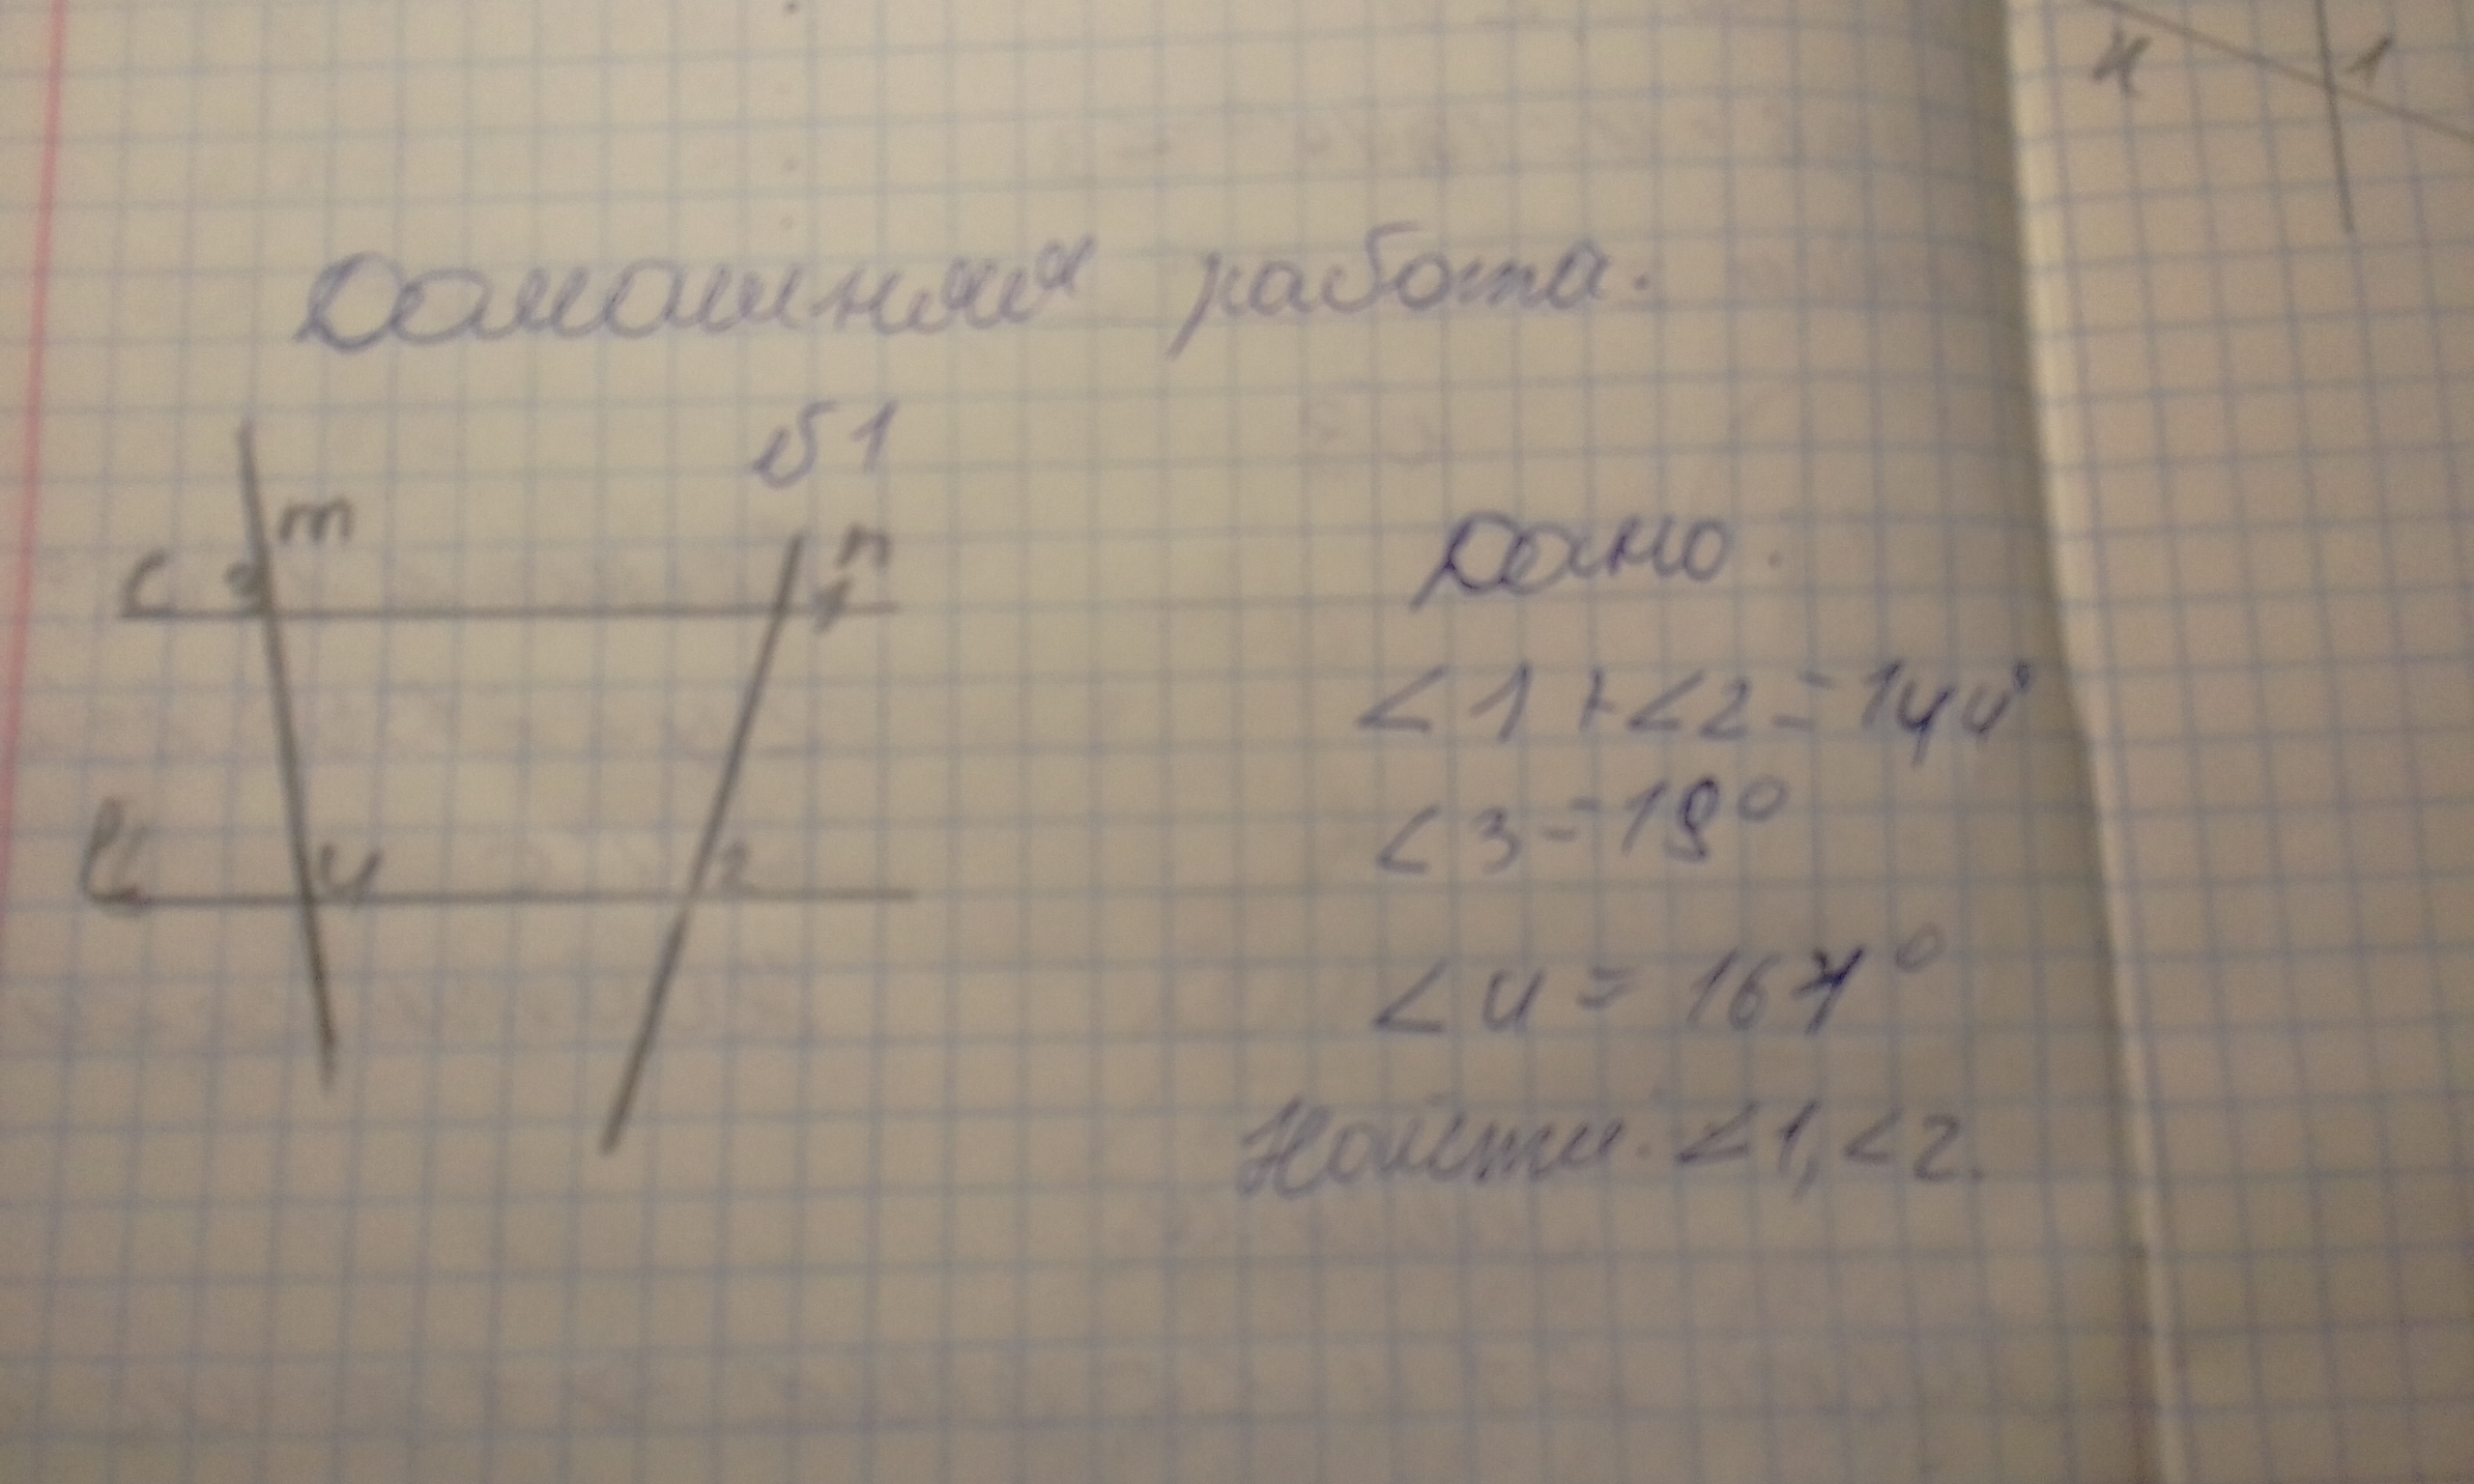 Домашняя работа.
№1
m
n
c 3
1
4
2
Дано:
<1+<2=144°
<3=19°
<4=167°
Найти: <1, <2.
4 1